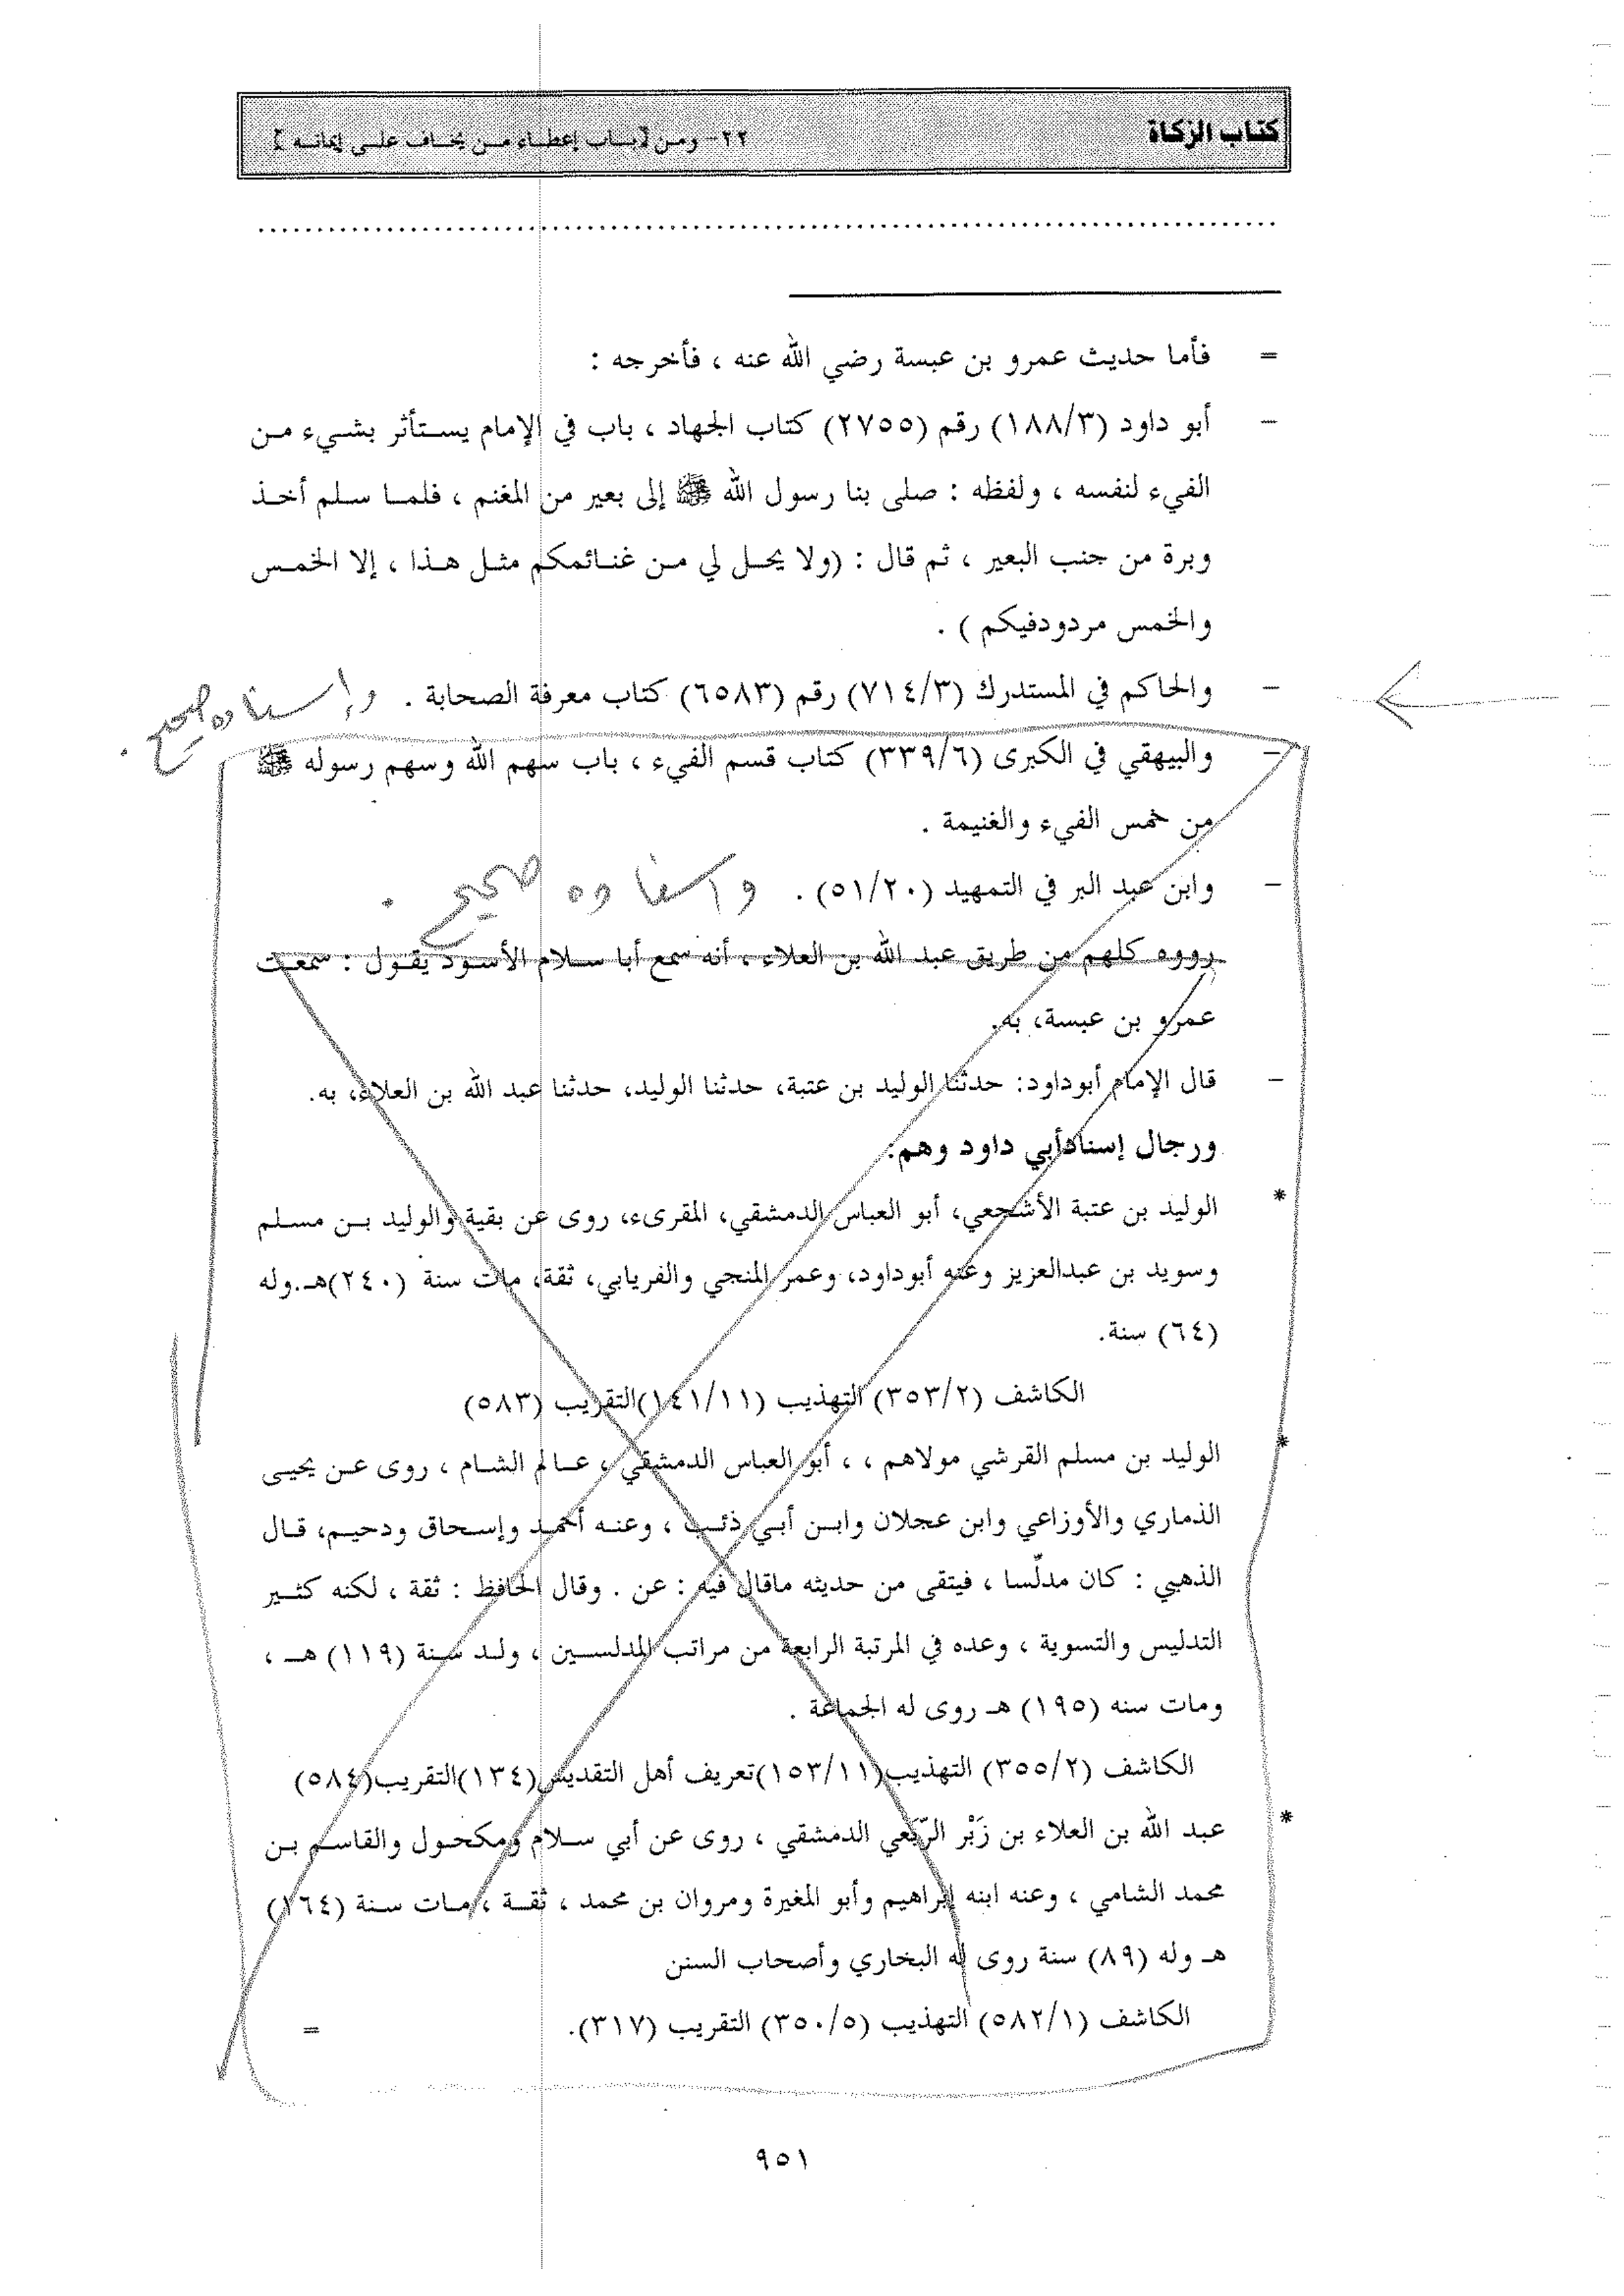 كتاب الزكاة ٢٢- ومن [باب إعطاء من يخاف على إيمانه]
= فأما حديث عمرو بن عبسة رضي الله عنه ، فأخرجه :
- أبو داود (١٨٨/٣) رقم (٢٧٥٥) كتاب الجهاد ، باب في الإمام يستأثر بشيء من
الفيء لنفسه ، ولفظه : صلى بنا رسول الله ﷺ إلى بعير من المغنم ، فلما سلم أخذ
وبرة من جنب البعير ، ثم قال : (ولا يحل لي من غنائمكم مثل هذا ، إلا الخمس
والخمس مردودفيكم ) .
- والحاكم في المستدرك (٧١٤/٣) رقم (٦٥٨٣) كتاب معرفة الصحابة . وإسناده صحيح .
- والبيهقي في الكبرى (٣٣٩/٦) كتاب قسم الفيء ، باب سهم الله وسهم رسوله ﷺ
من خمس الفيء والغنيمة .
- وابن عبد البر في التمهيد (٥١/٢٠) . وإسناده صحيح .
رووه كلهم من طريق عبد الله بن العلاء ، أنه سمع أبا سلام الأسود يقول : سمعت
عمرو بن عبسة، به.
- قال الإمام أبوداود: حدثنا الوليد بن عتبة، حدثنا الوليد، حدثنا عبد الله بن العلاء، به.
ورجال إسنادأبي داود وهم:
* الوليد بن عتبة الأشجعي، أبو العباس الدمشقي، المقرىء، روى عن بقية والوليد بن مسلم
وسويد بن عبدالعزيز وعنه أبوداود، وعمر المنجي والفريابي، ثقة، مات سنة (٢٤٠)هـ.وله
(٦٤) سنة.
الكاشف (٣٥٣/٢) التهذيب (١٤١/١١)التقريب (٥٨٣)
* الوليد بن مسلم القرشي مولاهم ، ، أبو العباس الدمشقي ، عالم الشام ، روى عن يحيى
الذماري والأوزاعي وابن عجلان وابن أبي ذئب ، وعنه أحمد وإسحاق ودحيم، قال
الذهبي : كان مدلّسا ، فيتقى من حديثه ماقال فيه : عن . وقال الحافظ : ثقة ، لكنه كثير
التدليس والتسوية ، وعده في المرتبة الرابعة من مراتب المدلسين ، ولد سنة (١١٩) هـ ،
ومات سنه (١٩٥) هـ روى له الجماعة .
الكاشف (٣٥٥/٢) التهذيب(١٥٣/١١)تعريف أهل التقديس(١٣٤)التقريب(٥٨٤)
* عبد الله بن العلاء بن زَبْر الرّبَعي الدمشقي ، روى عن أبي سلام ومكحول والقاسم بن
محمد الشامي ، وعنه ابنه إبراهيم وأبو المغيرة ومروان بن محمد ، ثقة ، مات سنة (١٦٤)
هـ وله (٨٩) سنة روى له البخاري وأصحاب السنن
الكاشف (٥٨٢/١) التهذيب (٣٥٠/٥) التقريب (٣١٧). =
٩٥١